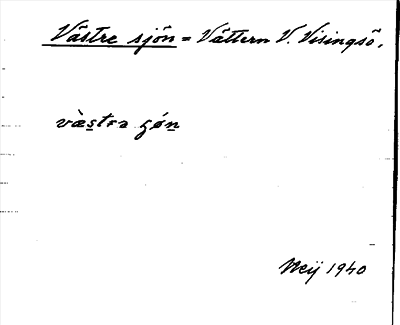 Västre sjön = Vättern V. Visingsö.
væ̀stra ʂón
Meÿ 1940